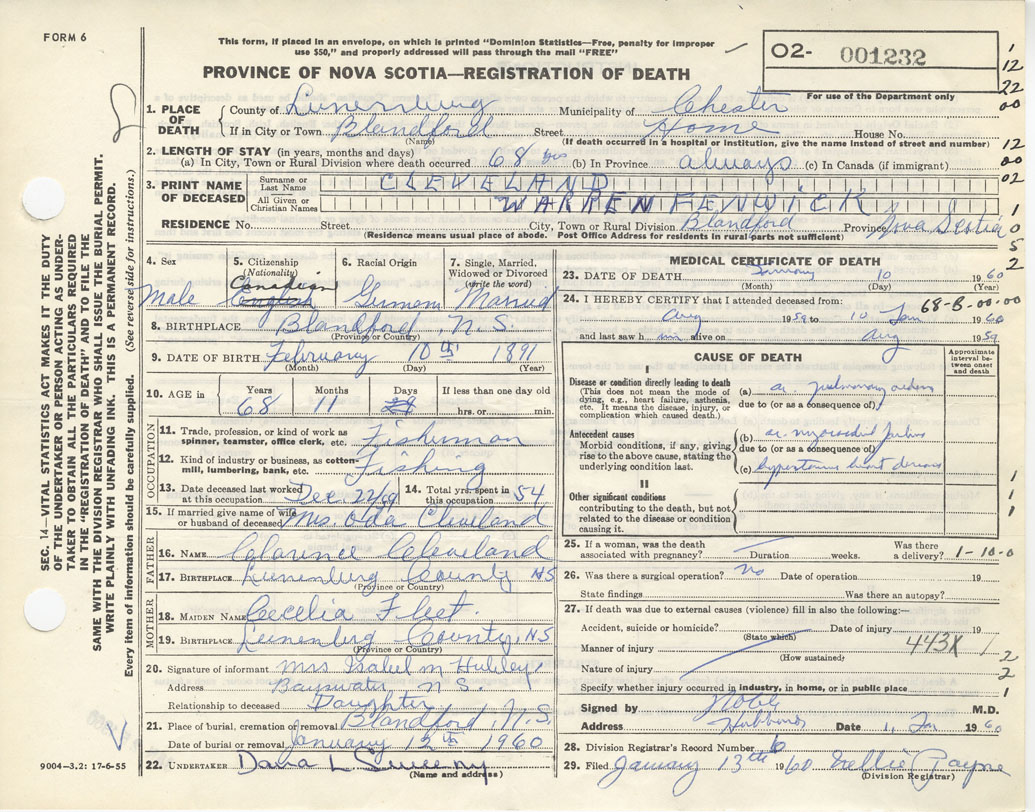 FORM 6
This form, if placed in an envelope, on which is printed "Dominion Statistics—Free, penalty for improper
use $50," and properly addressed will pass through the mail "FREE"
O2- 001232
For use of the Department only
PROVINCE OF NOVA SCOTIA—REGISTRATION OF DEATH
1. PLACE OF DEATH County of Lunenburg Municipality of Chester
If in City or Town Blandford Street Home House No.
(Name) (If death occurred in a hospital or institution, give the name instead of street and number)
2. LENGTH OF STAY (in years, months and days)
(a) In City, Town or Rural Division where death occurred 68 yrs (b) In Province always (c) In Canada (if immigrant)
3. PRINT NAME OF DECEASED Surname or Last Name CLEVELAND
All Given or Christian Names WARREN FENWICK
RESIDENCE No. Street City, Town or Rural Division Blandford Province Nova Scotia
(Residence means usual place of abode. Post Office Address for residents in rural parts not sufficient)
4. Sex Male
5. Citizenship (Nationality) Canadian English
6. Racial Origin German
7. Single, Married, Widowed or Divorced (write the word) Married
8. BIRTHPLACE Blandford, N.S.
(Province or Country)
9. DATE OF BIRTH February 10th 1891
(Month) (Day) (Year)
10. AGE in Years 68 Months 11 Days If less than one day old hrs. or min.
OCCUPATION
11. Trade, profession, or kind of work as spinner, teamster, office clerk, etc. Fisherman
12. Kind of industry or business, as cotton-mill, lumbering, bank, etc. Fishing
13. Date deceased last worked at this occupation Dec. 22/59
14. Total yrs. spent in this occupation 54
15. If married give name of wife or husband of deceased Mrs. Oda Cleveland
FATHER
16. NAME Clarence Cleveland
17. BIRTHPLACE Lunenburg County NS
(Province or Country)
MOTHER
18. MAIDEN NAME Cecelia Fleet.
19. BIRTHPLACE Lunenburg County, NS
(Province or Country)
20. Signature of informant Mrs Isabel M
Address Bayswater, N S.
Relationship to deceased Daughter
21. Place of burial, cremation or removal Blandford, N.S.
Date of burial or removal January 12th 1960
22. UNDERTAKER Dana L Sweeny
(Name and address)
9004-3.2: 17-6-55
MEDICAL CERTIFICATE OF DEATH
23. DATE OF DEATH January 10 1960
(Month) (Day) (Year)
24. I HEREBY CERTIFY that I attended deceased from: 68-B-00-00
Aug 1959 to 10 Jan 1960
and last saw him alive on Aug 1959
CAUSE OF DEATH
Approximate interval between onset and death
I
Disease or condition directly leading to death
(This does not mean the mode of dying, e.g., heart failure, asthenia, etc. It means the disease, injury, or complication which caused death.)
(a) ac. pulmonary edema
due to (or as a consequence of)
Antecedent causes
Morbid conditions, if any, giving rise to the above cause, stating the underlying condition last.
(b) ac. myocardial failure
due to (or as a consequence of)
(c) hypertensive heart disease
II
Other significant conditions
contributing to the death, but not related to the disease or condition causing it.
25. If a woman, was the death associated with pregnancy? Duration weeks. Was there a delivery? 1-10-0
26. Was there a surgical operation? no Date of operation 19
State findings Was there an autopsy?
27. If death was due to external causes (violence) fill in also the following:—
Accident, suicide or homicide? Date of injury 19
(State which)
Manner of injury 443X
(How sustained)
Nature of injury
Specify whether injury occurred in industry, in home, or in public place
Signed by M.D.
Address Hubbards Date 1, Jan 1960
28. Division Registrar's Record Number 6
29. Filed January 13th 1960 Nellie Payne
(Division Registrar)
SEC. 14—VITAL STATISTICS ACT MAKES IT THE DUTY
OF THE UNDERTAKER OR PERSON ACTING AS UNDER-
TAKER TO OBTAIN ALL THE PARTICULARS REQUIRED
IN THE "REGISTRATION OF DEATH" AND TO FILE THE
SAME WITH THE DIVISION REGISTRAR WHO SHALL ISSUE THE BURIAL PERMIT.
WRITE PLAINLY WITH UNFADING INK. THIS IS A PERMANENT RECORD.
Every item of information should be carefully supplied. (See reverse side for instructions.)
1
12
22
00
12
00
02
1
0
5
2
1
1
1
1
2
2
1